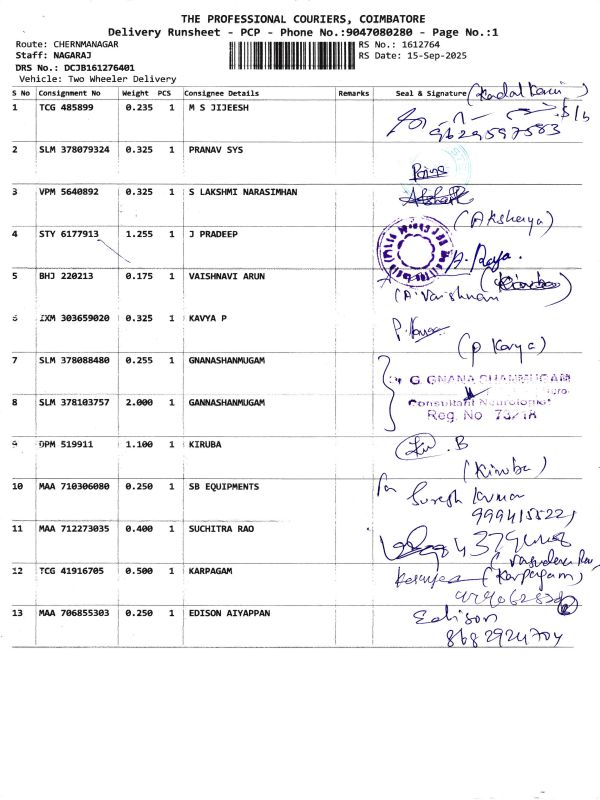 THE PROFESSIONAL COURIERS, COIMBATORE
Delivery Runsheet - PCP - Phone No.:9047080280 - Page No.:1
Route: CHERNMANAGAR RS No.: 1612764
Staff: NAGARAJ RS Date: 15-Sep-2025
DRS No.: DCJB161276401
Vehicle: Two Wheeler Delivery
S No Consignment No Weight PCS Consignee Details Remarks Seal & Signature
1 TCG 485899 0.235 1 M S JIJEESH
9629597583
2 SLM 378079324 0.325 1 PRANAV SYS
3 VPM 5640892 0.325 1 S LAKSHMI NARASIMHAN
(Akshaya)
4 STY 6177913 1.255 1 J PRADEEP
5 BHJ 220213 0.175 1 VAISHNAVI ARUN
6 IXM 303659020 0.325 1 KAVYA P
(P Kavya)
7 SLM 378088480 0.255 1 GNANASHANMUGAM
G. GNANA SHANMUGAM
8 SLM 378103757 2.000 1 GANNASHANMUGAM
Consultant Neurologist
Reg. No 73218
9 DPM 519911 1.100 1 KIRUBA
.B
(Kiruba)
10 MAA 710306080 0.250 1 SB EQUIPMENTS
Suresh Kumar
11 MAA 712273035 0.400 1 SUCHITRA RAO
12 TCG 41916705 0.500 1 KARPAGAM
(Karpagam)
13 MAA 706855303 0.250 1 EDISON AIYAPPAN
Edison
8682924704